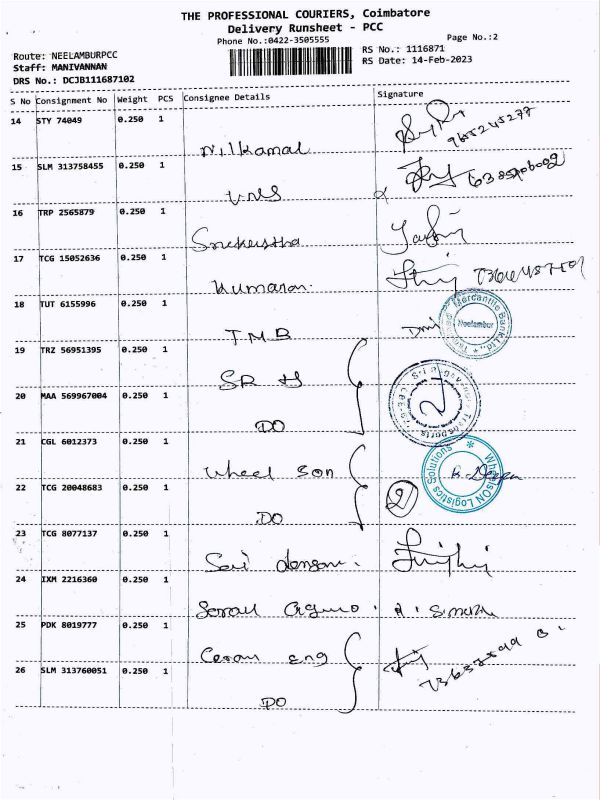 THE PROFESSIONAL COURIERS, Coimbatore
Delivery Runsheet - PCC
Phone No.:0422-3505555
Page No.:2
Route: NEELAMBURPCC
RS No.: 1116871
Staff: MANIVANNAN
RS Date: 14-Feb-2023
DRS No.: DCJB111687102
S No Consignment No Weight PCS Consignee Details Signature
14 STY 74049 0.250 1
Nilkamal
15 SLM 313758455 0.250 1
16 TRP 2565879 0.250 1
17 TCG 15052636 0.250 1
Kumaran.
18 TUT 6155996 0.250 1
T.M.B
Mercantile Bank Ltd.,
Neelambur
19 TRZ 56951395 0.250 1
SR H
20 MAA 569967004 0.250 1
DO
21 CGL 6012373 0.250 1
Wheel Son
WheelSON Logistics Solutions
22 TCG 20048683 0.250 1
DO
2
23 TCG 8077137 0.250 1
24 IXM 2216360 0.250 1
25 PDK 8019777 0.250 1
eng
26 SLM 313760051 0.250 1
DO